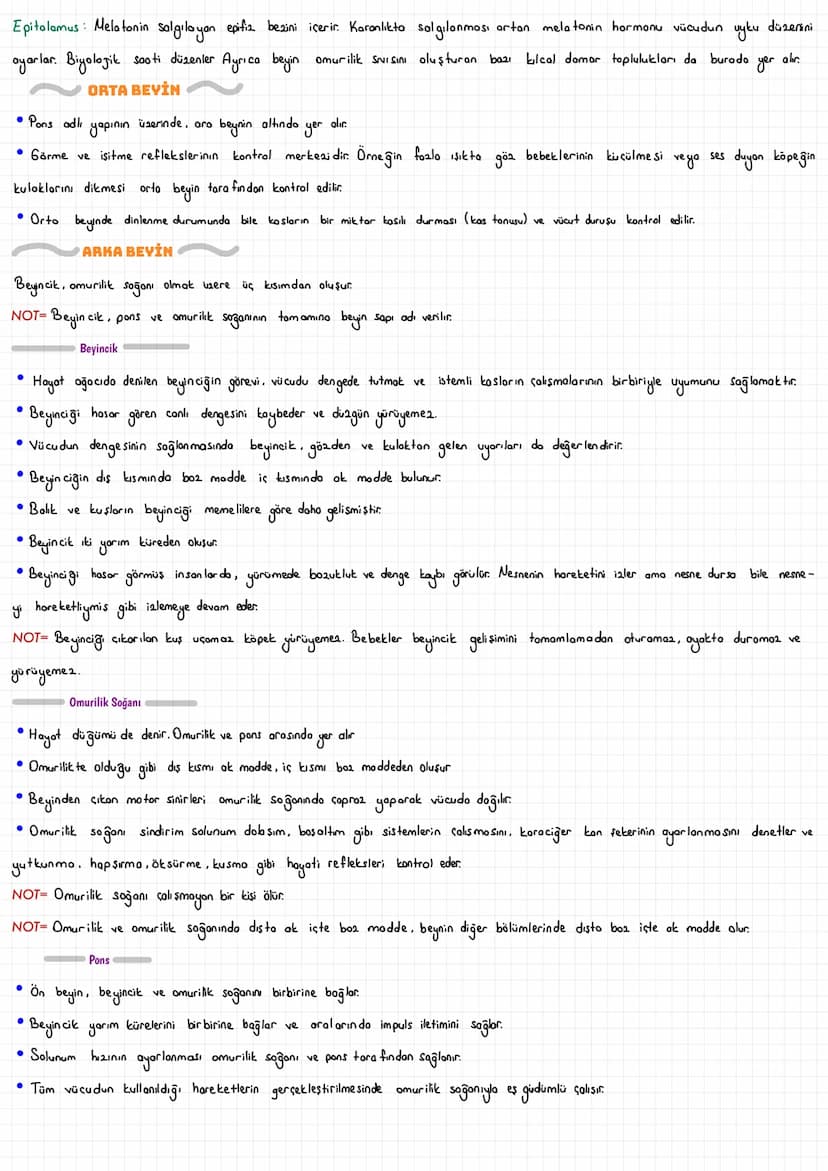 Epitalamus: Melatonin salgılayan epifiz bezini içerir. Karanlıkta salgılanması artan melatonin hormonu vücudun uyku düzenini
ayarlar. Biyolojik saati düzenler Ayrıca beyin omurilik sıvısını oluşturan bazı kılcal damar toplulukları da burada yer alır.
ORTA BEYİN
• Pons adlı yapının üzerinde, ara beynin altında yer alır.
• Görme ve işitme reflekslerinin kontrol merkezidir. Örneğin fazla ışıkta göz bebeklerinin küçülmesi veya ses duyan köpeğin
kulaklarını dikmesi orta beyin tarafından kontrol edilir.
• Orta beyinde dinlenme durumunda bile kasların bir miktar kasılı durması (kas tonusu) ve vücut duruşu kontrol edilir.
ARKA BEYİN
Beyincik, omurilik soğanı olmak üzere üç kısımdan oluşur.
NOT= Beyincik, pons ve omurilik soğanının tamamına beyin sapı adı verilir.
Beyincik
• Hayat ağacıda denilen beyinciğin görevi, vücudu dengede tutmak ve istemli kasların çalışmalarının birbiriyle uyumunu sağlamaktır.
• Beyinciği hasar gören canlı dengesini kaybeder ve düzgün yürüyemez.
• Vücudun dengesinin sağlanmasında beyincik, gözden ve kulaktan gelen uyarıları da değerlendirir.
• Beyinciğin dış kısmında boz madde iç kısmında ak madde bulunur.
• Balık ve kuşların beyinciği memelilere göre daha gelişmiştir.
• Beyincik iki yarım küreden oluşur.
• Beyinciği hasar görmüş insanlarda, yürümede bozukluk ve denge kaybı görülür. Nesnenin hareketini izler ama nesne dursa bile nesne-
yi hareketliymiş gibi izlemeye devam eder.
NOT= Beyinciği çıkarılan kuş uçamaz köpek yürüyemez. Bebekler beyincik gelişimini tamamlamadan oturamaz, ayakta duramaz ve
yürüyemez.
Omurilik Soğanı
• Hayat düğümü de denir. Omurilik ve pons arasında yer alır
• Omurilikte olduğu gibi dış kısmı ak madde, iç kısmı boz maddeden oluşur
• Beyinden çıkan motor sinirleri omurilik soğanında çapraz yaparak vücuda dağılır.
• Omurilik soğanı sindirim solunum dolaşım, boşaltım gibi sistemlerin çalışmasını, karaciğer kan şekerinin ayarlanmasını denetler ve
yutkunma, hapşırma, öksürme, kusma gibi hayati refleksleri kontrol eder.
NOT= Omurilik soğanı çalışmayan bir kişi ölür.
NOT= Omurilik ve omurilik soğanında dışta ak içte boz madde, beynin diğer bölümlerinde dışta boz içte ak madde olur.
Pons
• Ön beyin, beyincik ve omurilik soğanını birbirine bağlar.
• Beyincik yarım kürelerini birbirine bağlar ve aralarında impuls iletimini sağlar.
• Solunum hızının ayarlanması omurilik soğanı ve pons tarafından sağlanır.
• Tüm vücudun kullanıldığı hareketlerin gerçekleştirilmesinde omurilik soğanıyla eş güdümlü çalışır.